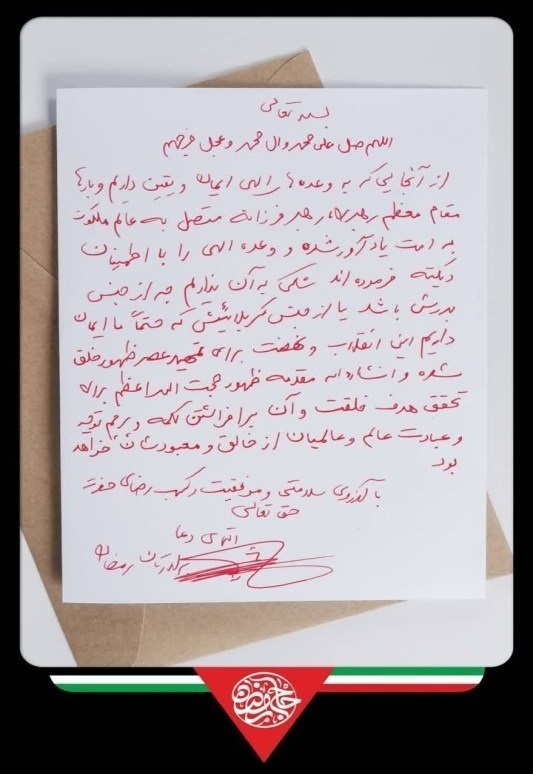 بسمه تعالی
اللهم صل علی محمد و ال محمد و عجل فرجهم
از آنجایی که به وعده‌های الهی ایمان و یقین داریم و بارها
مقام معظم رهبری، رهبر فرزانه متصل به عالم ملکوت
به امت یادآور شده و وعده الهی را با اطمینان
دیکته فرموده‌اند شکی به آن نداریم چه از جنس
بدرش باشد یا از جنس کربلائیش که حتماً ما ایمان
داریم این انقلاب و نهضت برای تمهید عصر ظهور خلق
شده و انشاءاله مقدمه ظهور حجت اله اعظم برای
تحقق هدف خلقت و آن برافراشتن کلمه و پرچم توحید
و عبادت عالم و عالمیان از خالق و معبودشان خواهد
بود
با آرزوی سلامتی و موفقیت و کسب رضای حضرت
حق تعالی
التماس دعا
برادرتان رمضان
حاج رمضان